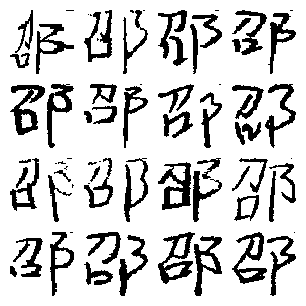 邵邵邵邵
邵邵邵邵
邵邵邵邵
邵邵邵邵